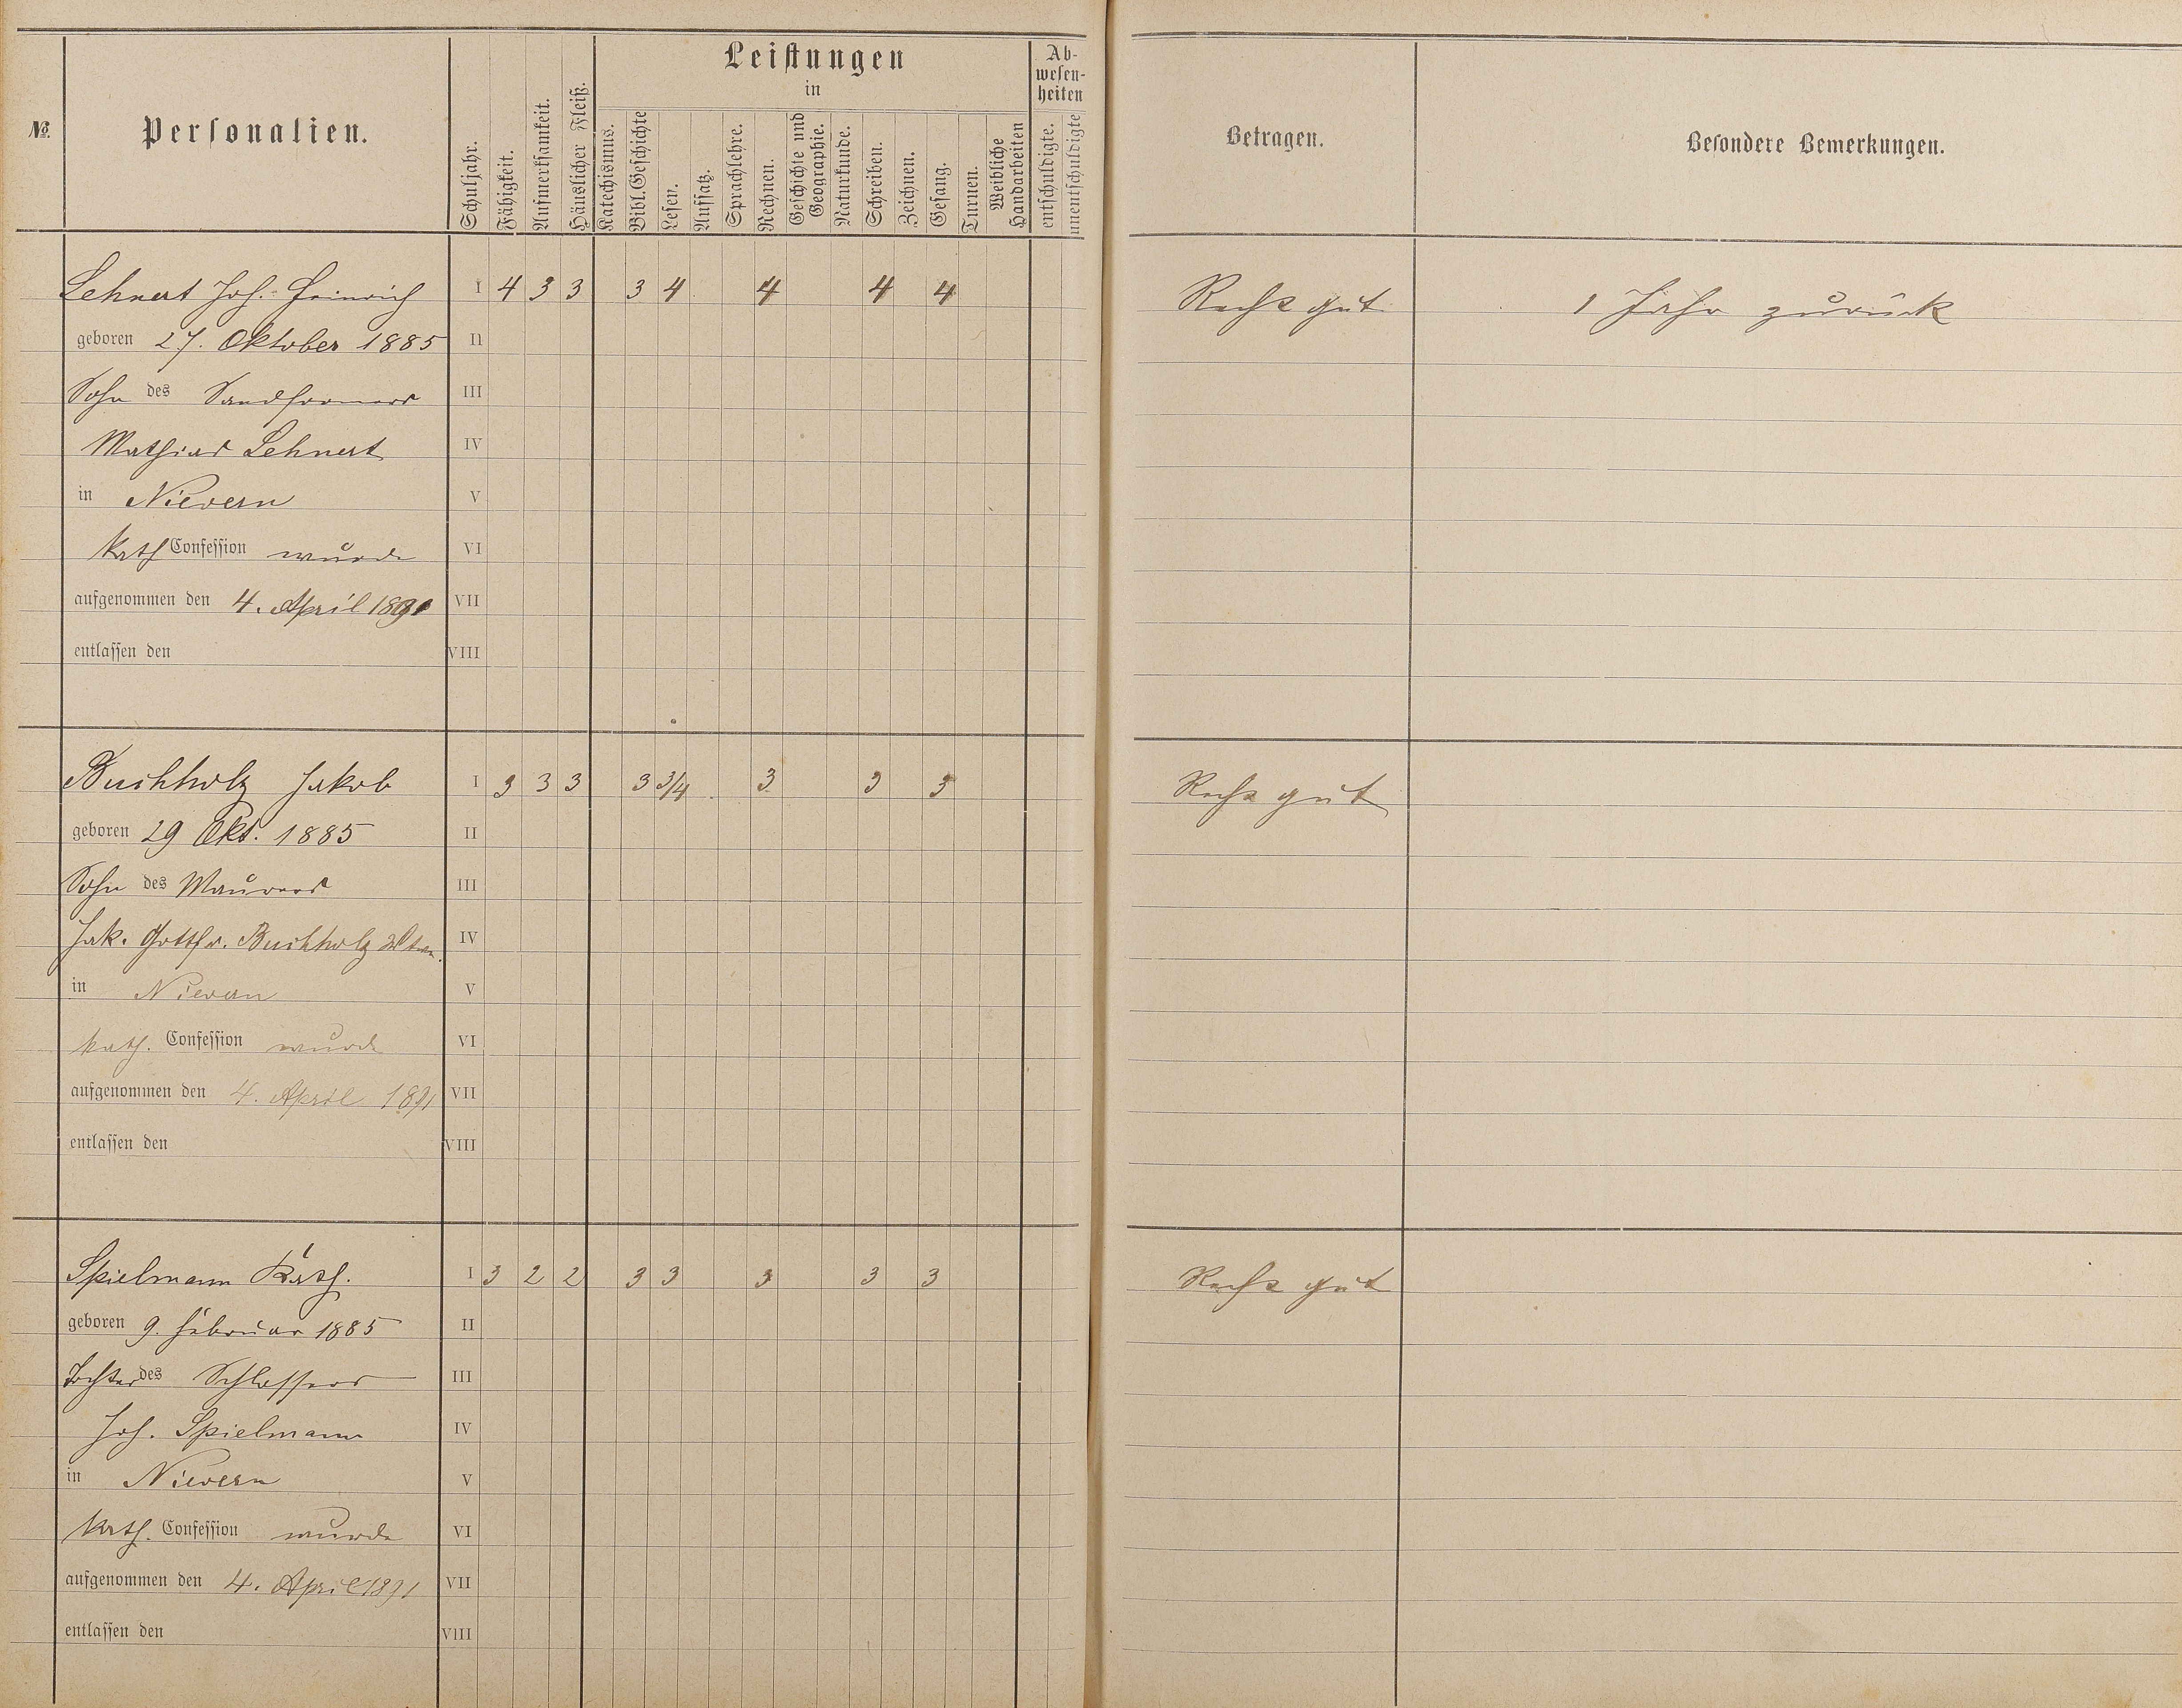 №.
Personalien.
Schuljahr.
Fähigkeit.
Aufmerksamkeit.
Häuslicher Fleiß.
Leistungen
in
Katechismus.
Bibl. Geschichte
Lesen.
Aufsatz.
Sprachlehre.
Rechnen.
Geschichte und
Geographie.
Naturkunde.
Schreiben.
Zeichnen.
Gesang.
Turnen.
Weibliche
Handarbeiten
Ab-
wesen-
heiten
entschuldigte.
unentschuldigte
Betragen.
Besondere Bemerkungen.
Lehnert Joh. Heinrich I 4 3 3 3 4 4 4 4 Recht gut 1 Jahr zurück
geboren 27. Oktober 1885 II
Sohn des Sandformers III
Mathias Lehnert IV
in Nievern V
kath Confession wurde VI
aufgenommen den 4. April 1891 VII
entlassen den VIII
Buchholz Jakob I 3 3 3 3 3/4 3 3 3 Recht gut
geboren 29 Okt. 1885 II
Sohn des Maurers III
Jak. Gottfr. Buchholz IV
in Nievern V
kath. Confession wurde VI
aufgenommen den 4. April 1891 VII
entlassen den VIII
Spielmann Kath. I 3 2 2 3 3 3 3 3 Recht gut
geboren 9. Februar 1885 II
Tochter des Schlossers III
Joh. Spielmann IV
in Nievern V
kath. Confession wurde VI
aufgenommen den 4. April 1891 VII
entlassen den VIII